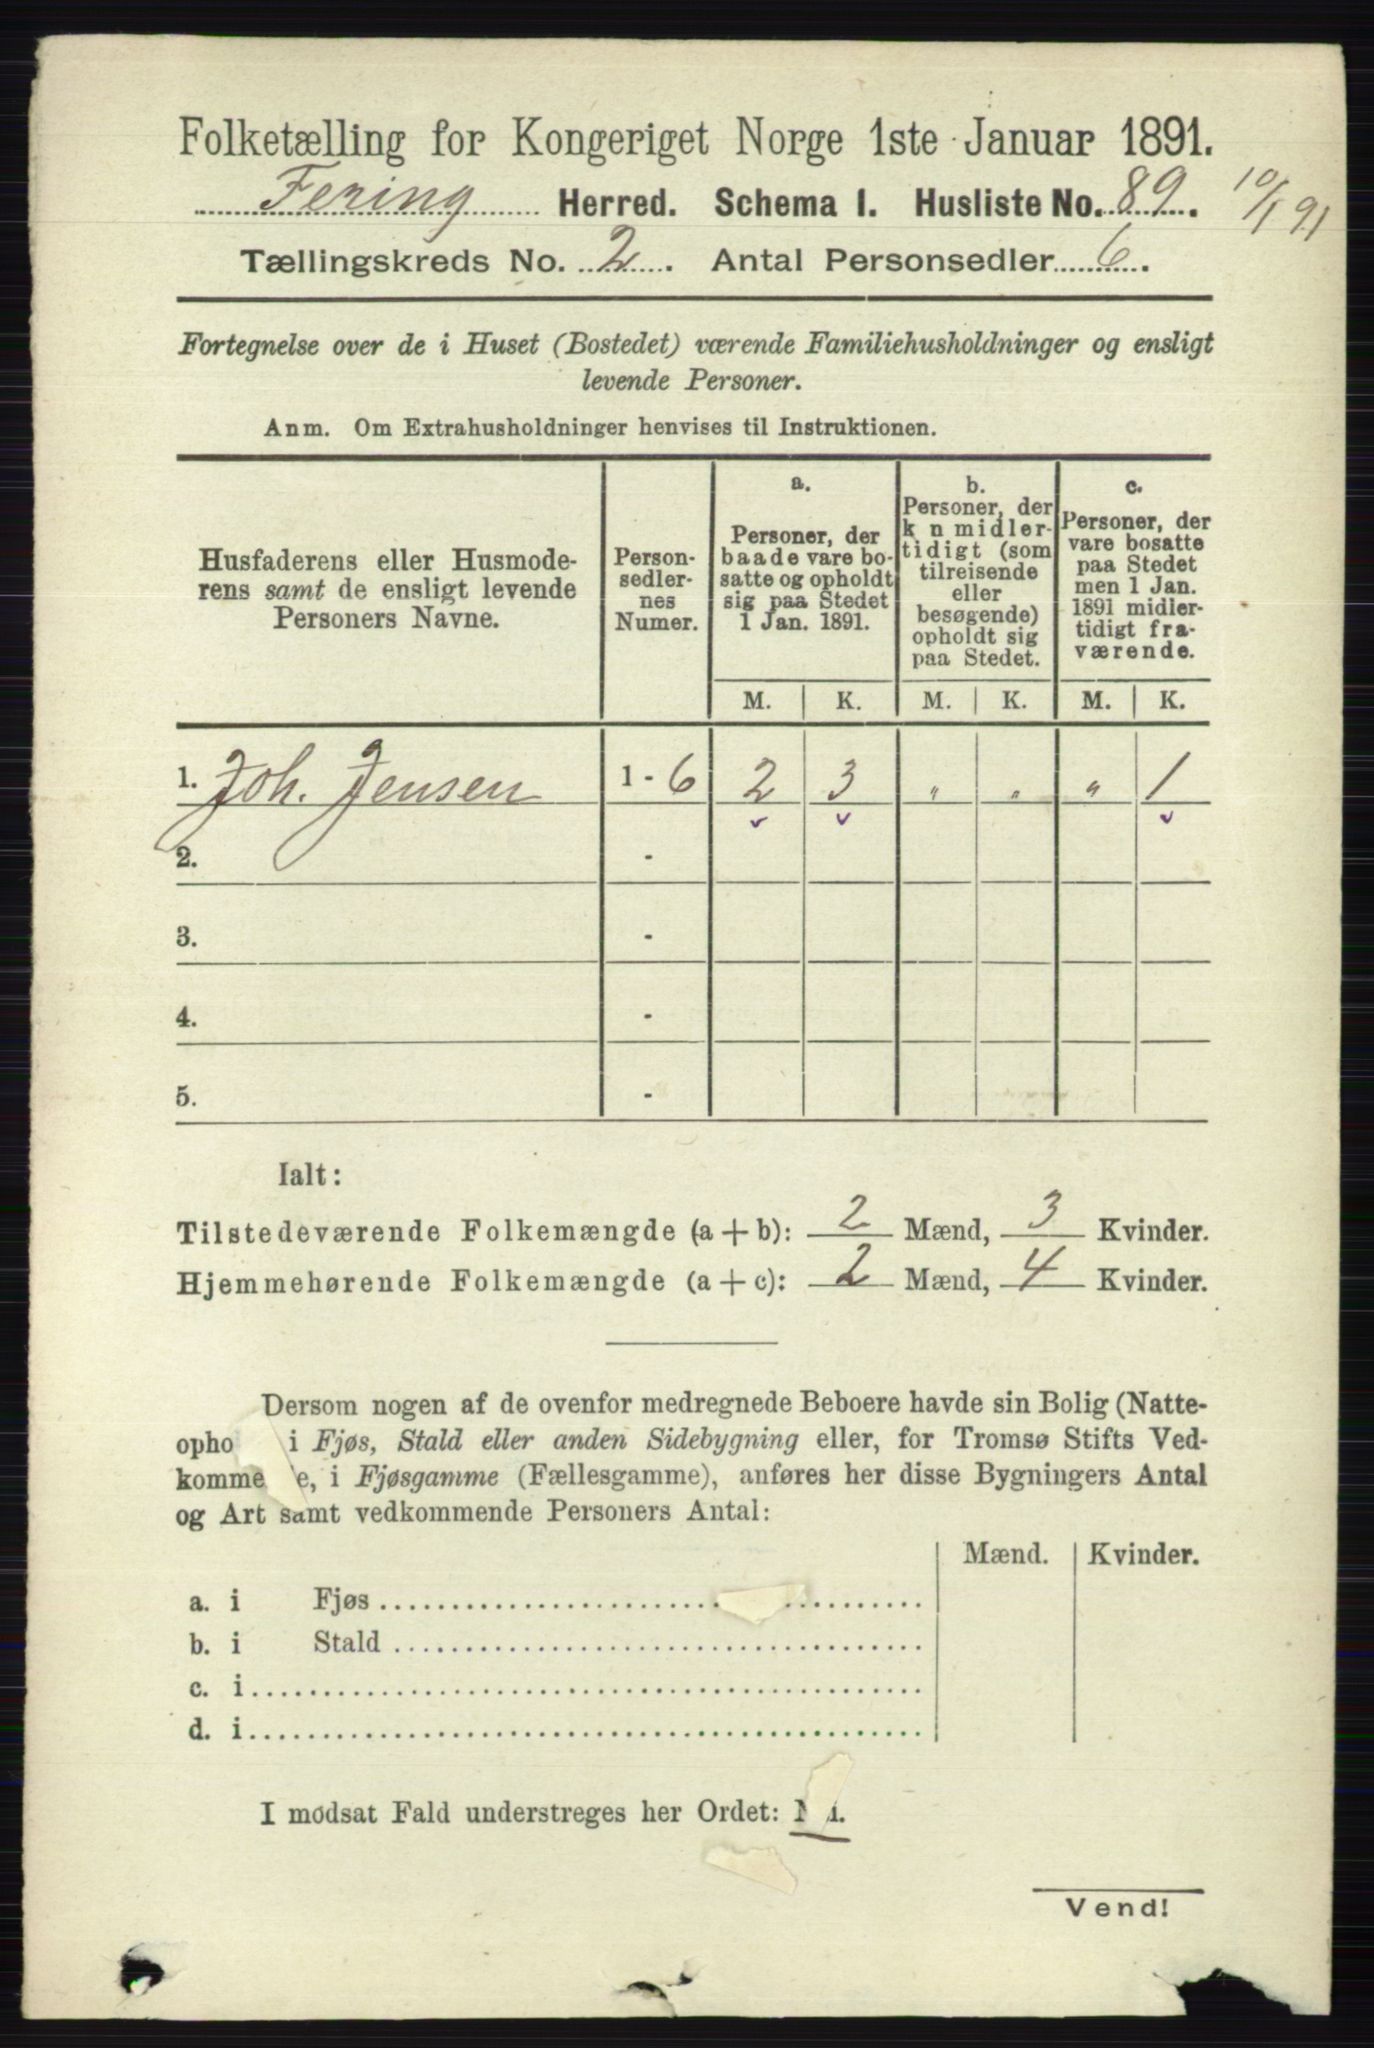 Folketælling for Kongeriget Norge 1ste Januar 1891.
Fering Herred. Schema I. Husliste No. 89. 10/1 91
Tællingskreds No. 2. Antal Personsedler 6.
Fortegnelse over de i Huset (Bostedet) værende Familiehusholdninger og ensligt
levende Personer.
Anm. Om Extrahusholdninger henvises til Instruktionen.
Husfaderens eller Husmode-
rens samt de ensligt levende
Personers Navne.
Person-
sedler-
nes
Numer.
a.
Personer, der
baade vare bo-
satte og opholdt
sig paa Stedet
1 Jan. 1891.
b.
Personer, der
k n midler-
tidigt (som
tilreisende
eller
besøgende)
opholdt sig
paa Stedet.
c.
Personer, der
vare bosatte
paa Stedet
men 1 Jan.
1891 midler-
tidigt fra-
værende.
M. K. M. K. M. K.
1. Joh. Jensen 1 - 6 2 3 " " " 1
2. -
3. -
4. -
5. -
Ialt:
Tilstedeværende Folkemængde (a + b): 2 Mænd, 3 Kvinder.
Hjemmehørende Folkemængde (a + c): 2 Mænd, 4 Kvinder.
Dersom nogen af de ovenfor medregnede Beboere havde sin Bolig (Natte-
opho i Fjøs, Stald eller anden Sidebygning eller, for Tromsø Stifts Ved-
komme e, i Fjøsgamme (Fællesgamme), anføres her disse Bygningers Antal
og Art samt vedkommende Personers Antal:
Mænd. Kvinder.
a. i Fjøs
b. i Stald
c. i
d. i
I modsat Fald understreges her Ordet:
Vend!